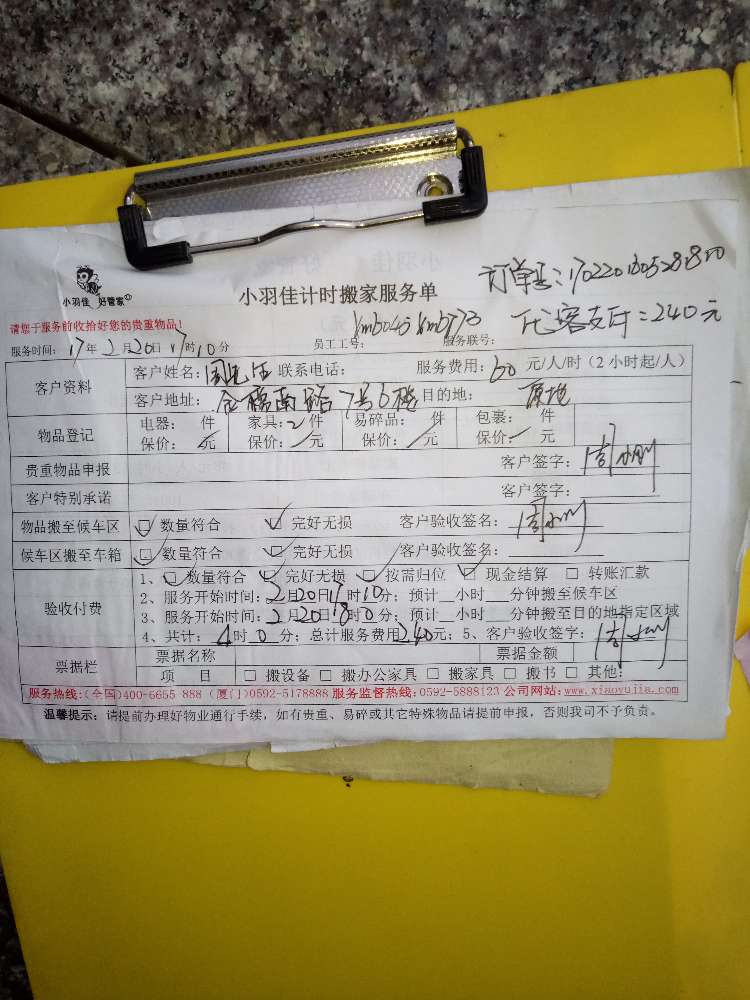 小羽佳 好管家
小羽佳计时搬家服务单
代客支付=240元
请您于服务前收拾好您的贵重物品!
员工工号: 服务联号:
服务时间: 17年2月20日17时10分
客户资料
客户姓名: 联系电话: 服务费用:60元/人/时(2小时起/人)
客户地址: 7号6楼 目的地: 原地
物品登记
电器: 件 家具:2件 易碎品: 件 包裹: 件
保价: 元 保价: 元 保价: 元 保价: 元
贵重物品申报 客户签字:
客户特别承诺 客户签字:
物品搬至候车区 □ 数量符合 □ 完好无损 客户验收签名:
候车区搬至车箱 □ 数量符合 □ 完好无损 客户验收签名:
验收付费
1、□ 数量符合 □ 完好无损 □ 按需归位 □ 现金结算 □ 转账汇款
2、服务开始时间:2月20日17时10分; 预计__小时__分钟搬至候车区
3、服务开始时间:2月20日18时0分; 预计__小时__分钟搬至目的地指定区域
4、共计:4时0分; 总计服务费用240元; 5、客户验收签字:
票据栏
票据名称 票据金额
项 目 □ 搬设备 □ 搬办公家具 □ 搬家具 □ 搬书 □ 其他:
服务热线:(全国)400-6655 888 (厦门)0592-5178888 服务监督热线:0592-5888123 公司网站:www.xiaoyujia.com
温馨提示: 请提前办理好物业通行手续, 如有贵重、易碎或其它特殊物品请提前申报, 否则我司不予负责。